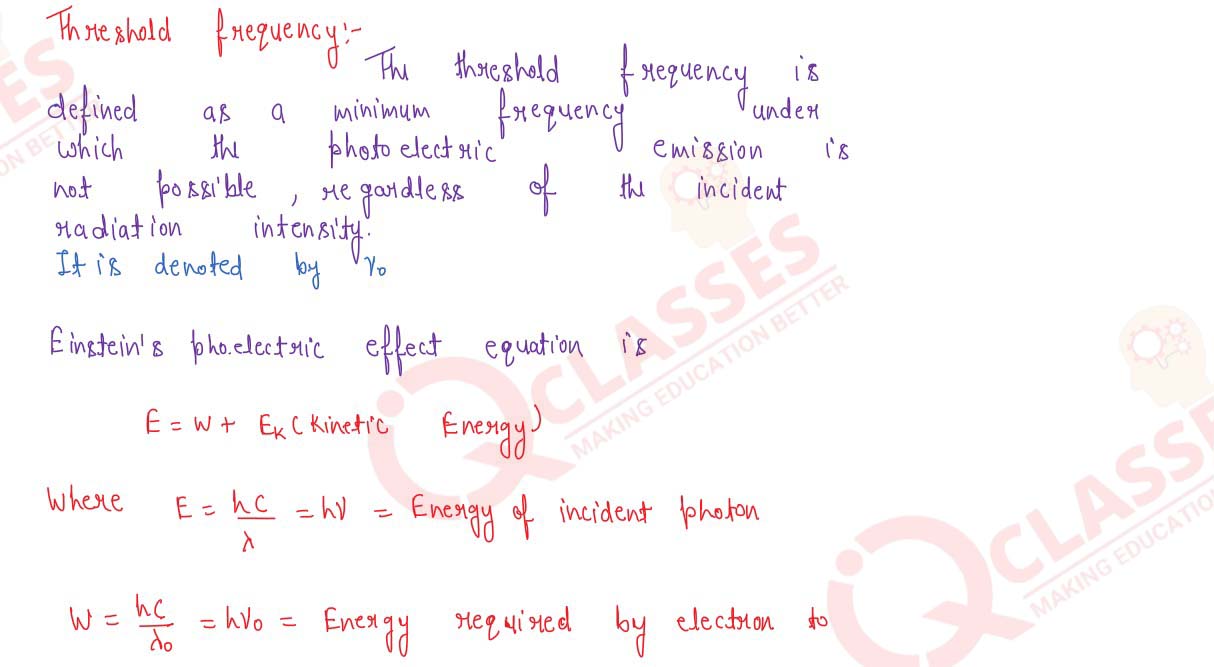 Threshold frequency:-
The threshold frequency is
defined as a minimum frequency under
which the photoelectric emission is
not possible, regardless of the incident
radiation intensity.
It is denoted by ν₀
Einstein's pho.electric effect equation is
E = W + E_K (kinetic Energy)
Where E = hc/λ = hν = Energy of incident photon
W = hc/λ₀ = hν₀ = Energy required by electron to
CLASSES
MAKING EDUCATION BETTER
CLASSES
MAKING EDUCATION
ES
ON BETTER